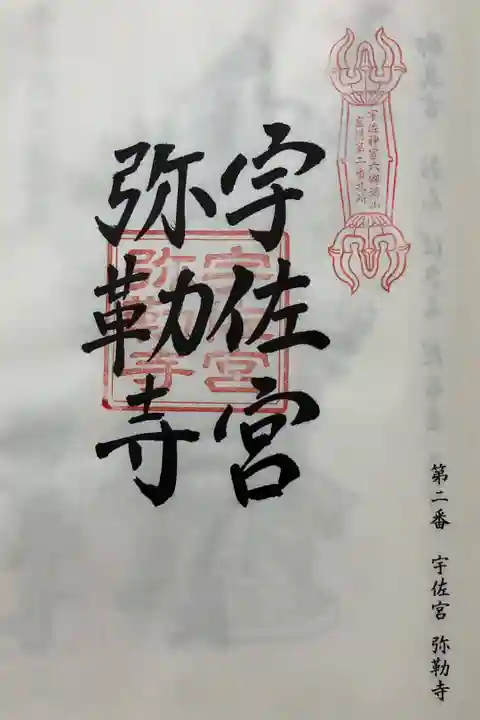 宇佐神宮六郷満山
霊場第二番札所
宇佐宮
弥勒寺
宇佐宮
弥勒寺
第二番 宇佐宮 弥勒寺